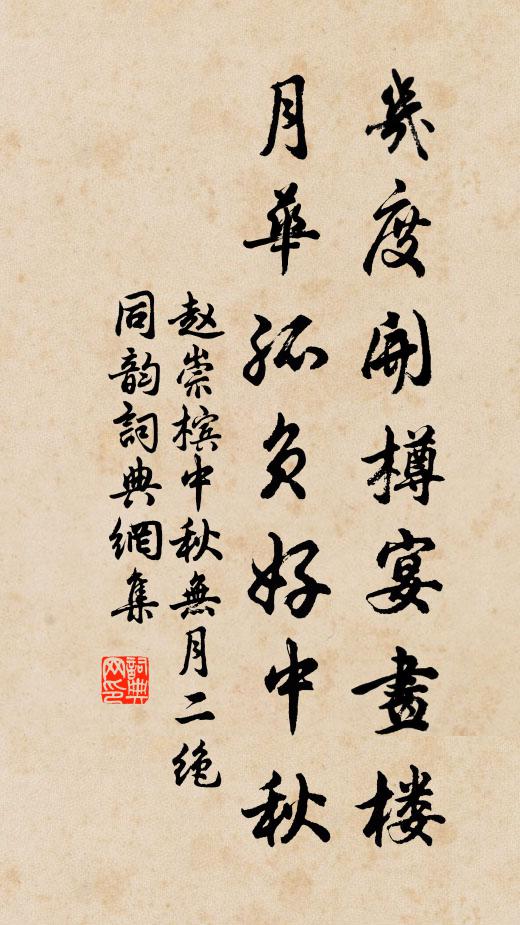 幾度開樽宴畫楼
月華孤负好中秋
赵崇槟中秋無月二绝
同韵詞典網集
詞典
网印